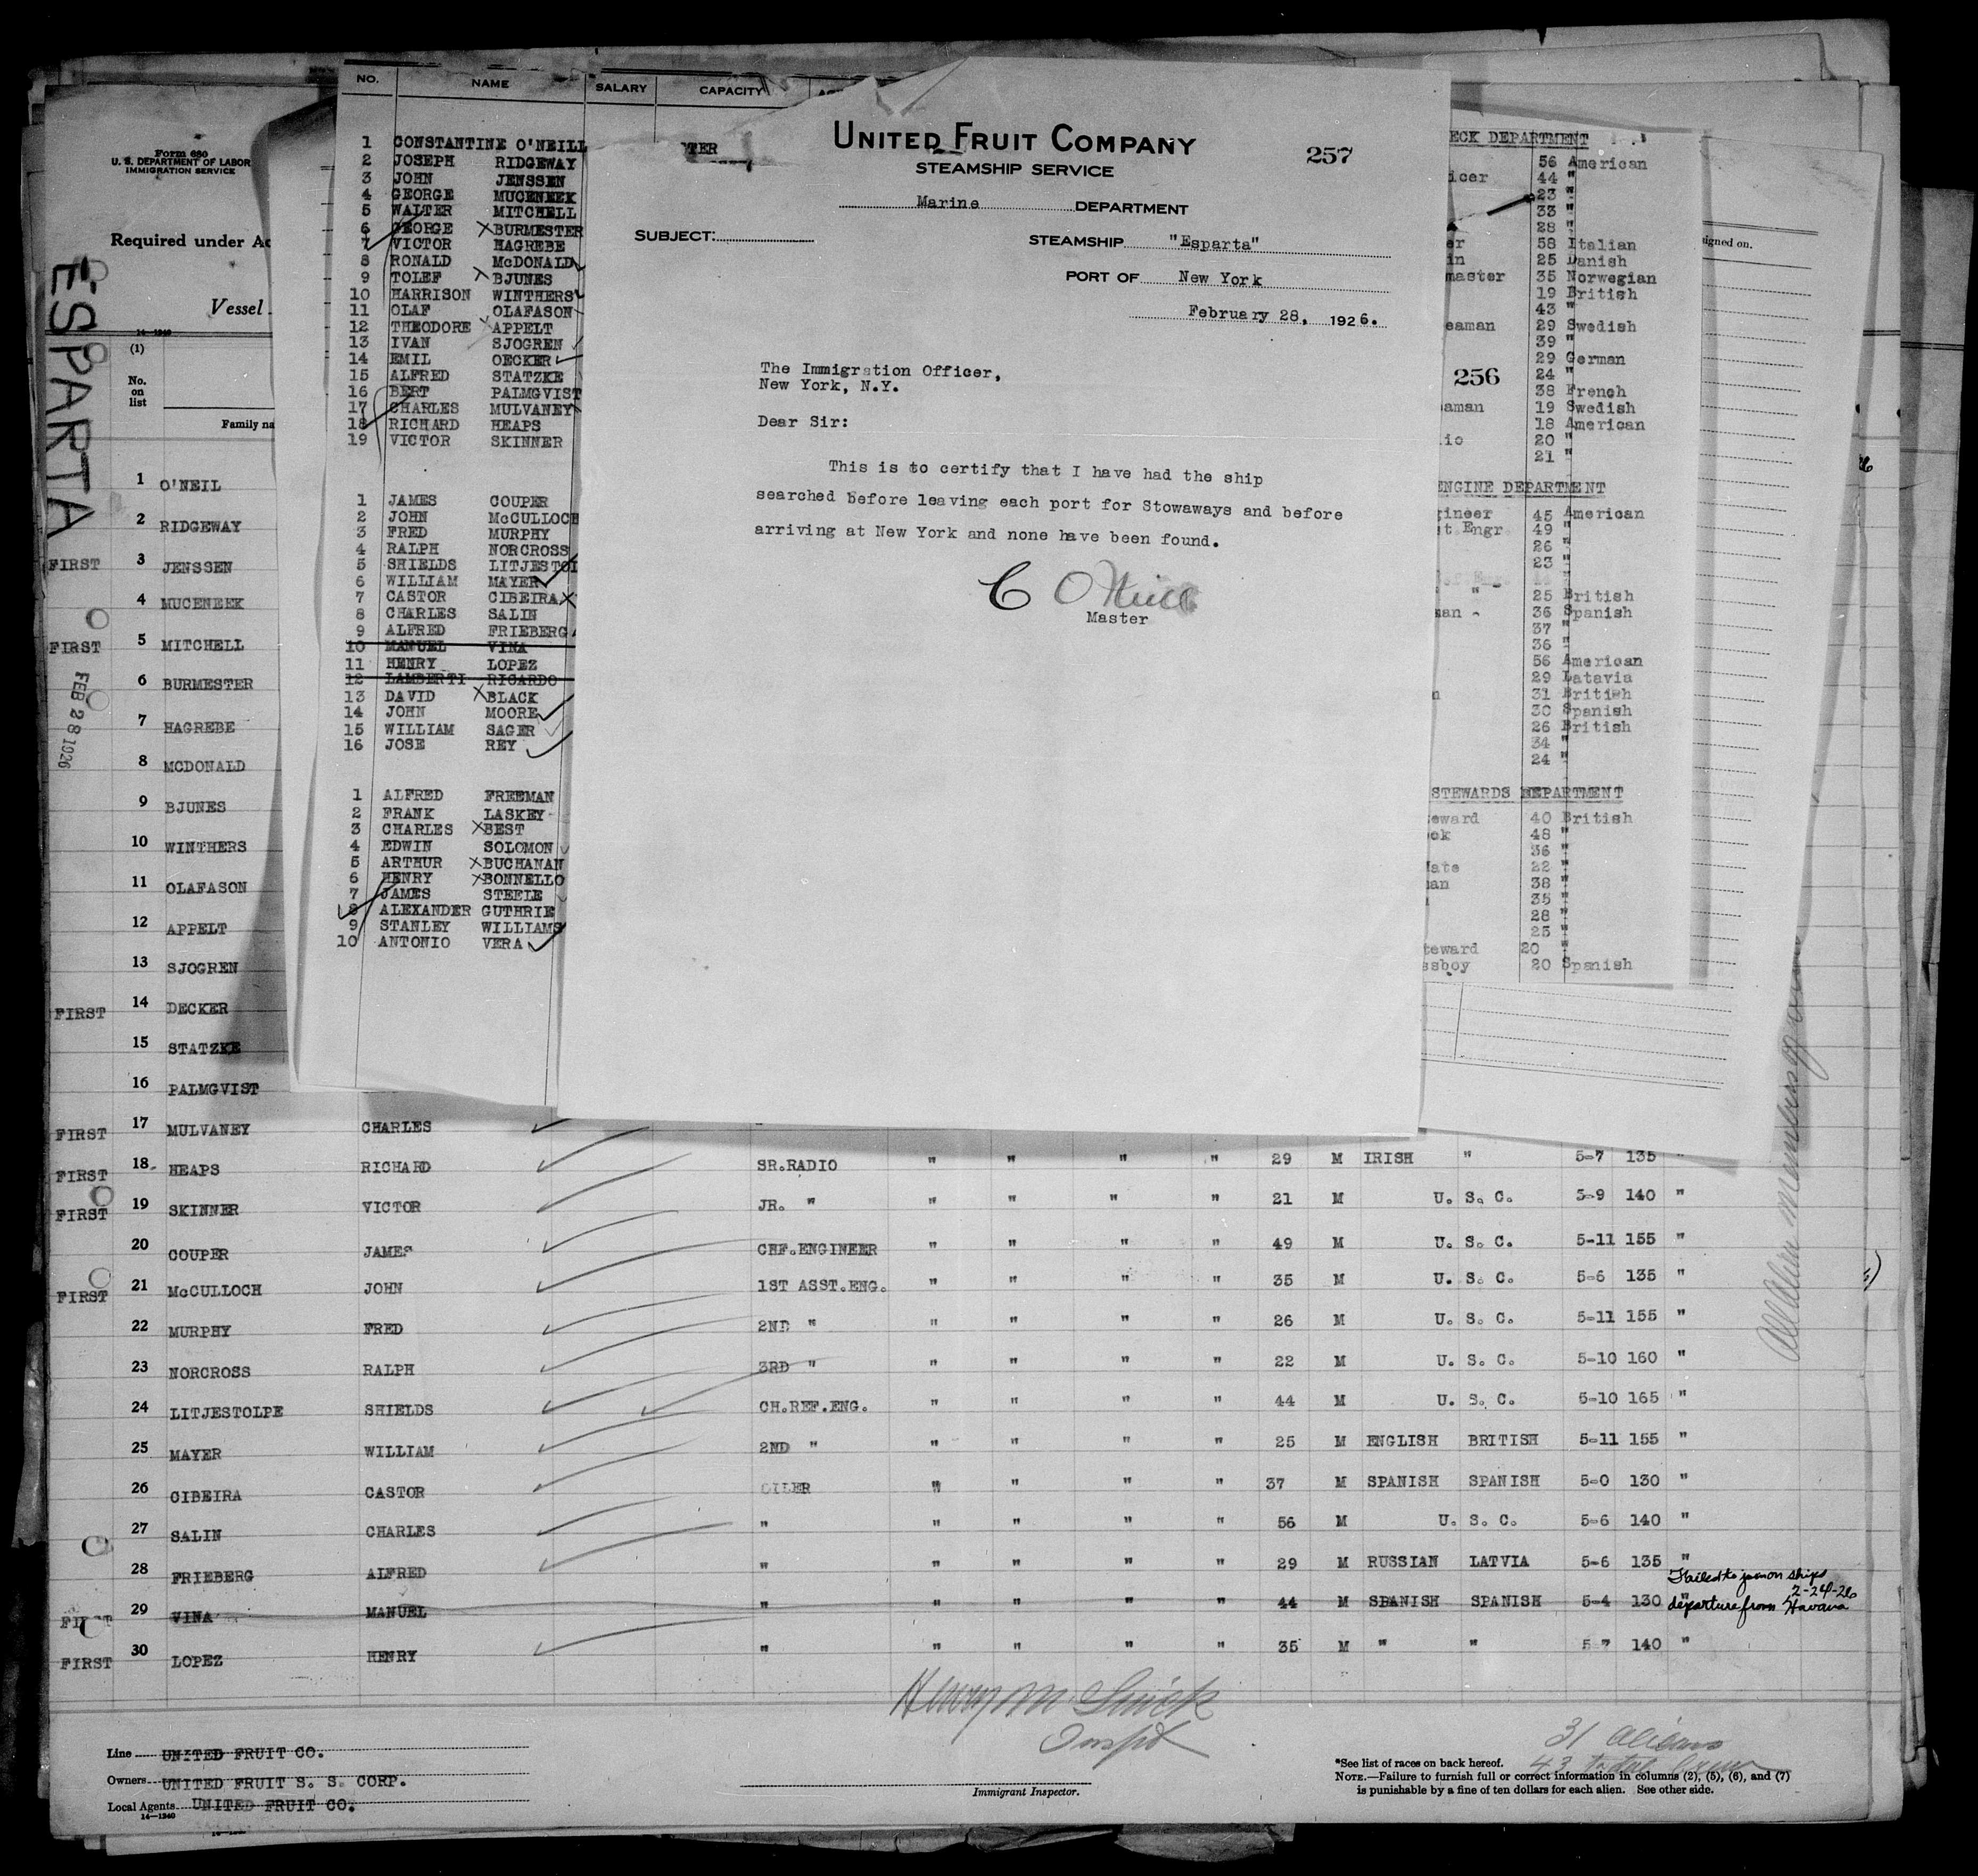 NO. NAME SALARY CAPACITY
1 CONSTANTINE O'NEILL
2 JOSEPH RIDGEWAY
3 JOHN JENSSEN
4 GEORGE MUCENEEK
5 WALTER MITCHELL
6 GEORGE BURMESTER
7 VICTOR HAGREBE
8 RONALD McDONALD
9 TOLEF BJUNES
10 HARRISON WINTHERS
11 OLAF OLAFASON
12 THEODORE APPELT
13 IVAN SJOGREN
14 EMIL OECKER
15 ALFRED STATZKE
16 BERT PALMGVIST
17 CHARLES MULVANEY
18 RICHARD HEAPS
19 VICTOR SKINNER
1 JAMES COUPER
2 JOHN McCULLOCH
3 FRED MURPHY
4 RALPH NORCROSS
5 SHIELDS LITJESTOL
6 WILLIAM MAYER
7 CASTOR CIBEIRA
8 CHARLES SALIN
9 ALFRED FRIEBERG
10 MANUEL VINA
11 HENRY LOPEZ
12 LAMBERTI RICARDO
13 DAVID BLACK
14 JOHN MOORE
15 WILLIAM SAGER
16 JOSE REY
1 ALFRED FREEMAN
2 FRANK LASKEY
3 CHARLES BEST
4 EDWIN SOLOMON
5 ARTHUR BUCHANAN
6 HENRY BONNELLO
7 JAMES STEELE
8 ALEXANDER GUTHRIE
9 STANLEY WILLIAMS
10 ANTONIO VERA
UNITED FRUIT COMPANY
257
STEAMSHIP SERVICE
Marine DEPARTMENT
SUBJECT:
STEAMSHIP "Esparta"
PORT OF New York
February 28, 1926.
The Immigration Officer,
New York, N.Y.
Dear Sir:
This is to certify that I have had the ship
searched before leaving each port for Stowaways and before
arriving at New York and none have been found.
C O'Neill
Master
ECK DEPARTMENT
56 American
icer 44 "
23 "
33 "
28 "
er 58 Italian
in 25 Danish
master 35 Norwegian
19 British
43 "
eaman 29 Swedish
39 "
29 German
24 "
256
38 French
aman 19 Swedish
18 American
io 20 "
21 "
ENGINE DEPARTMENT
gineer 45 American
t Engr 49 "
26 "
23 "
" 25 British
man 36 Spanish
37 "
36 "
56 American
29 Latavia
n 31 British
30 Spanish
26 British
34 "
24 "
STEWARDS DEPARTMENT
eward 40 British
ok 48 "
36 "
ate 22 "
an 38 "
35 "
28 "
25 "
teward 20 "
ssboy 20 Spanish
signed on.
Form 680
U. S. DEPARTMENT OF LABOR
IMMIGRATION SERVICE
Required under Ac
Vessel
14—1240
ESPARTA
FEB 28 1926
(1)
No. on list
Family na
1 O'NEIL
2 RIDGEWAY
FIRST 3 JENSSEN
4 MUCENEEK
FIRST 5 MITCHELL
6 BURMESTER
7 HAGREBE
8 MCDONALD
9 BJUNES
10 WINTHERS
11 OLAFASON
12 APPELT
13 SJOGREN
FIRST 14 DECKER
15 STATZKE
16 PALMGVIST
FIRST 17 MULVANEY CHARLES
FIRST 18 HEAPS RICHARD SR.RADIO " " " " 29 M IRISH " 5-7 135 "
FIRST 19 SKINNER VICTOR JR. " " " " " 21 M U. S. C. 5-9 140 "
20 COUPER JAMES CHF.ENGINEER " " " " 49 M U. S. C. 5-11 155 "
FIRST 21 McCULLOCH JOHN 1ST ASST.ENG. " " " " 35 M U. S. C. 5-6 135 "
22 MURPHY FRED 2ND " " " " " 26 M U. S. C. 5-11 155 "
23 NORCROSS RALPH 3RD " " " " " 22 M U. S. C. 5-10 160 "
24 LITJESTOLPE SHIELDS CH.REF.ENG. " " " " 44 M U. S. C. 5-10 165 "
25 MAYER WILLIAM 2ND " " " " " 25 M ENGLISH BRITISH 5-11 155 "
26 CIBEIRA CASTOR OILER " " " " 37 M SPANISH SPANISH 5-0 130 "
27 SALIN CHARLES " " " " " 56 M U. S. C. 5-6 140 "
28 FRIEBERG ALFRED " " " " " 29 M RUSSIAN LATVIA 5-6 135 "
FIRST 29 VINA MANUEL " " " " " 44 M SPANISH SPANISH 5-4 130 "
Failed to join on ships
2-24-26
departure from Havana
FIRST 30 LOPEZ HENRY " " " " " 35 M " " 5-7 140 "
All Alien members
Henry M.
Insp
31 aliens
43 total
Line UNITED FRUIT CO.
Owners UNITED FRUIT S. S. CORP.
Local Agents UNITED FRUIT CO.
14—1240
Immigrant Inspector.
*See list of races on back hereof.
NOTE.—Failure to furnish full or correct information in columns (2), (5), (6), and (7)
is punishable by a fine of ten dollars for each alien. See other side.